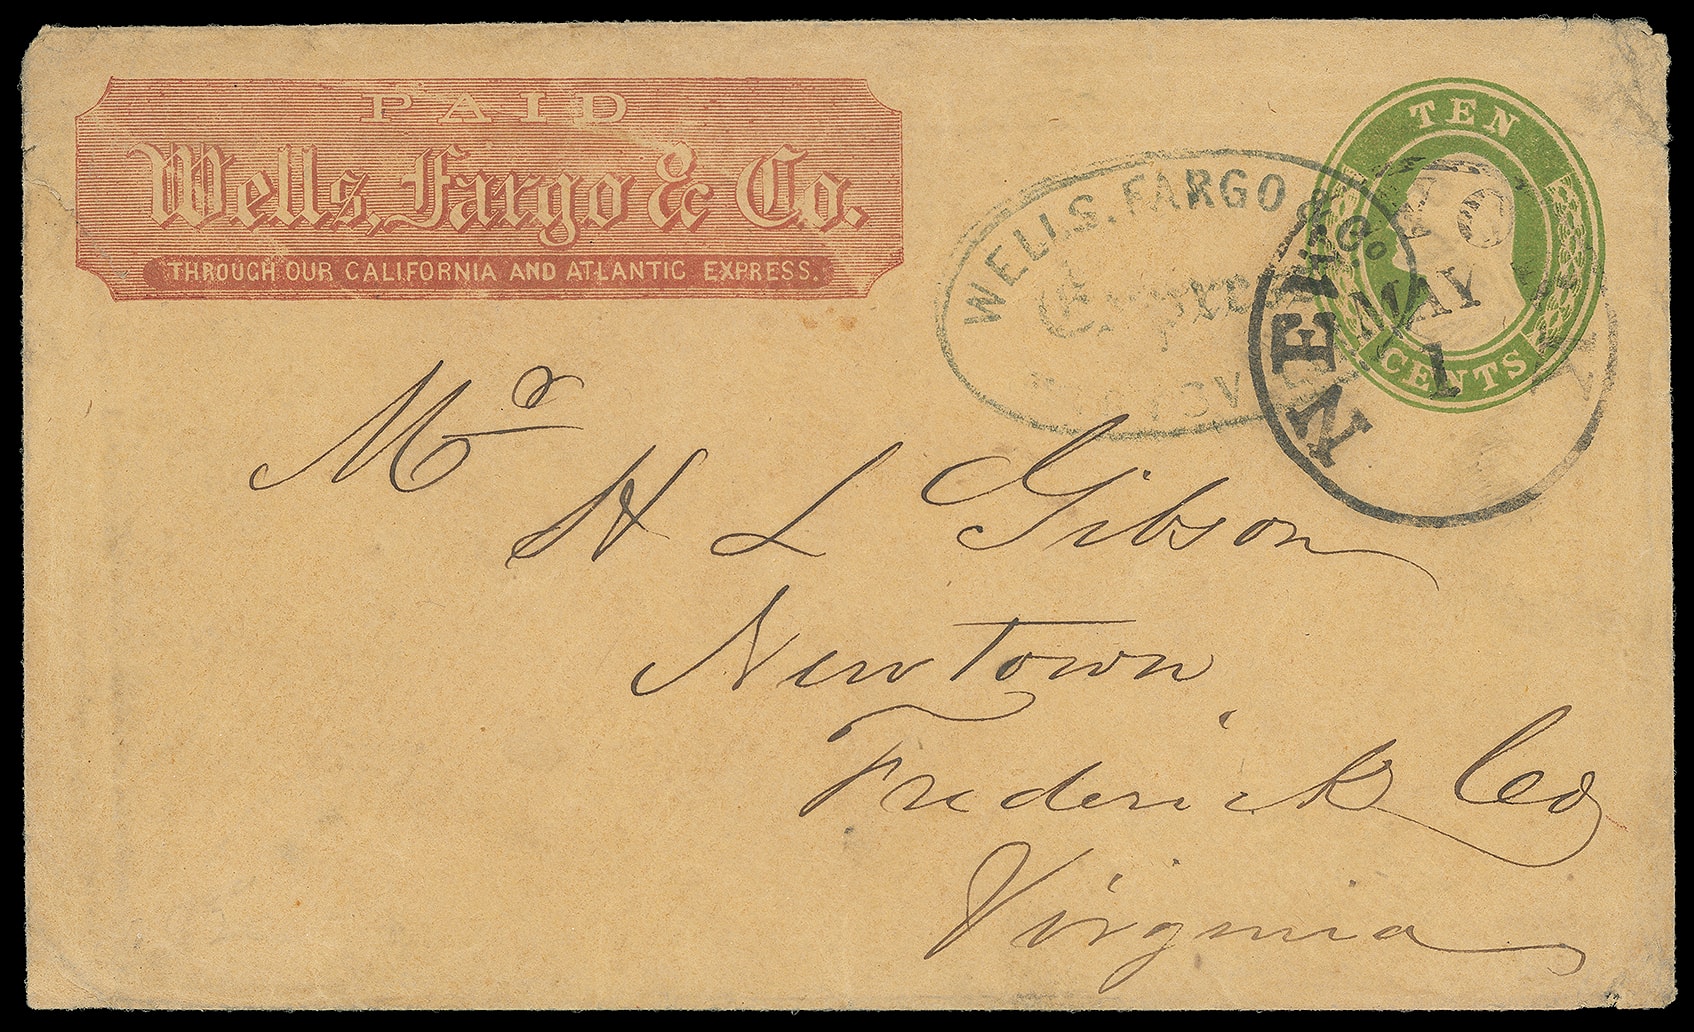 PAID
Wells, Fargo & Co.
THROUGH OUR CALIFORNIA AND ATLANTIC EXPRESS.
WELLS, FARGO & Co.
Express
TEN
CENTS
NEW
MAY
1
Mr
H L Gibson
New Town
Frederick Co
Virginia